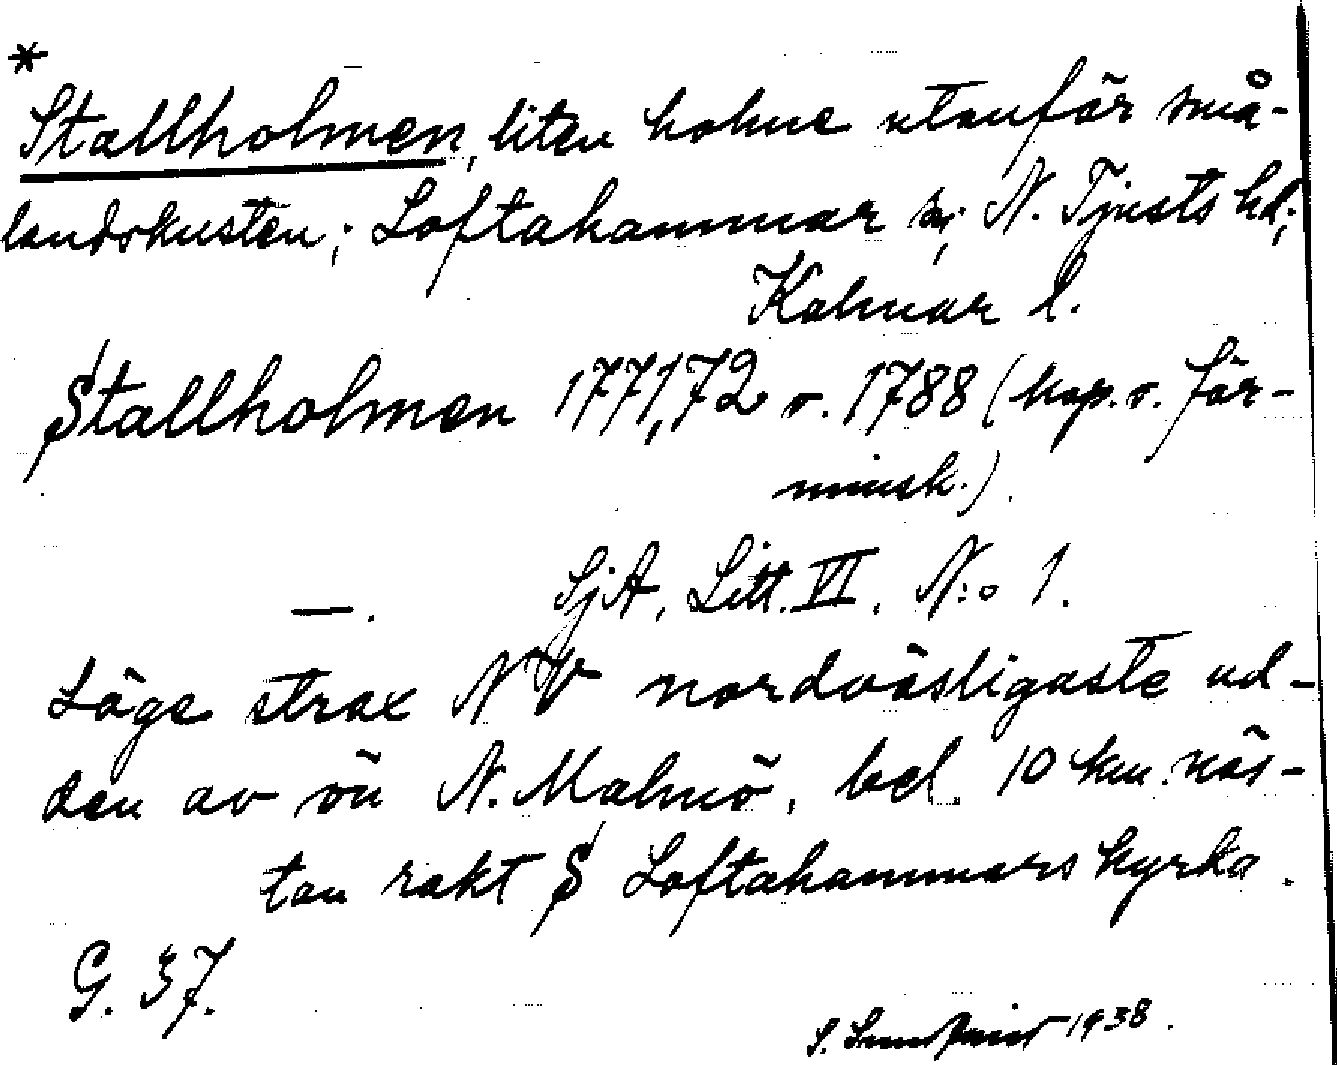 *
Stallholmen, liten holme utanför små-
landskusten; Loftahammar sn; N. Tjusts hd;
Kalmar l.
Stallholmen 1771,72 o. 1788 (kop. o. för-
minsk.).
—. SjA, Litt. VI, N:o 1.
Läge strax NV nordvästligaste ud-
den av ön N. Malmö, bel. 10 km. näs-
tan rakt S Loftahammars kyrka.
G. 37.
S. 1938.